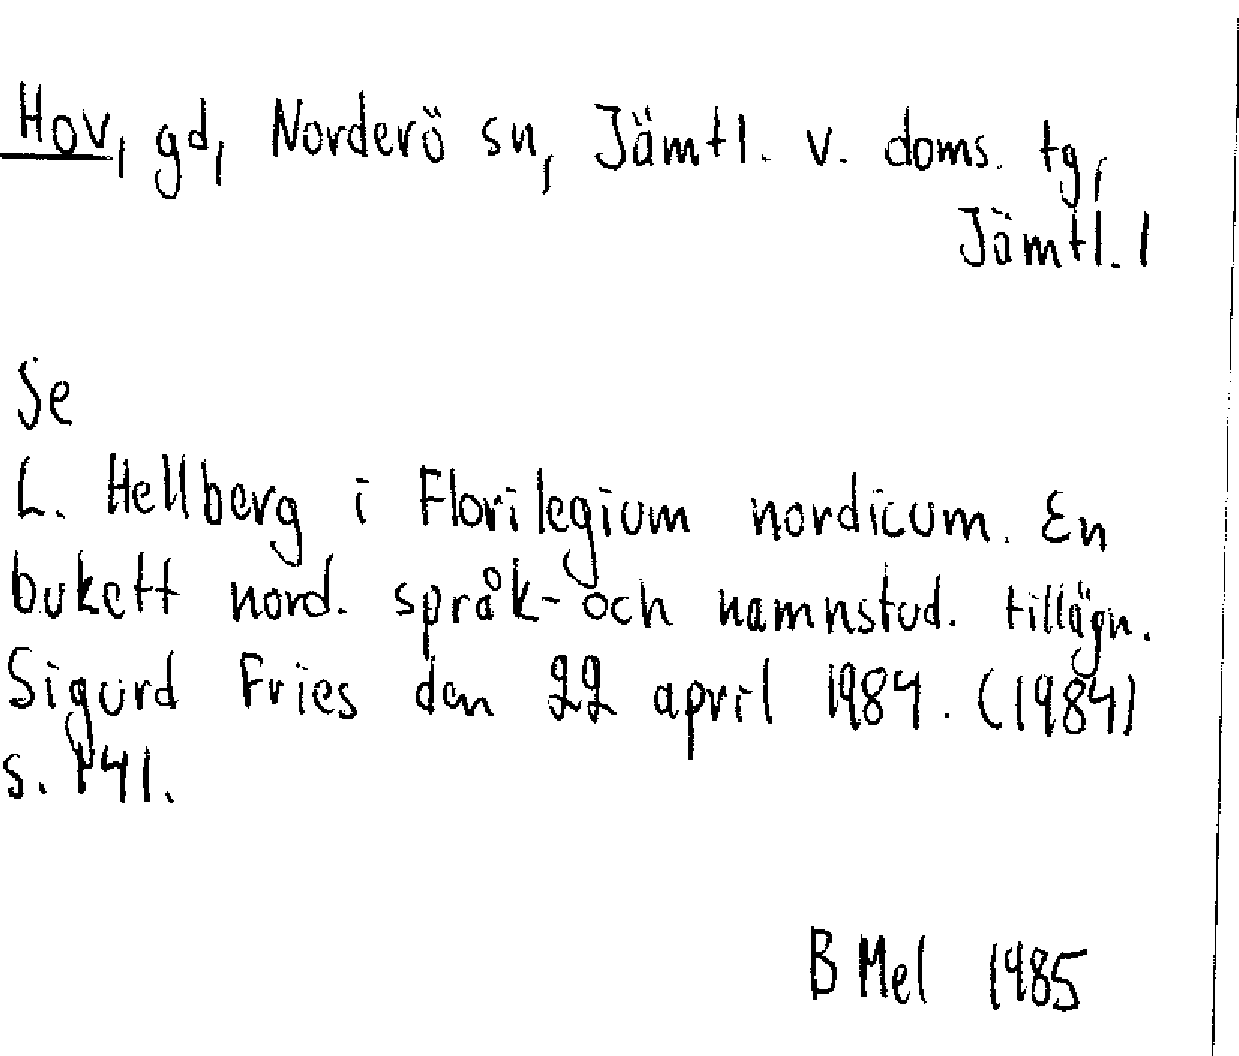 Hov, gd, Norderö sn, Jämtl. v. doms. tg,
Jämtl. l
Se
L. Hellberg i Florilegium nordicum. En
bukett nord. språk- och namnstud. tillägn.
Sigurd Fries den 22 april 1984. (1984)
s. 141.
B Mel 1985